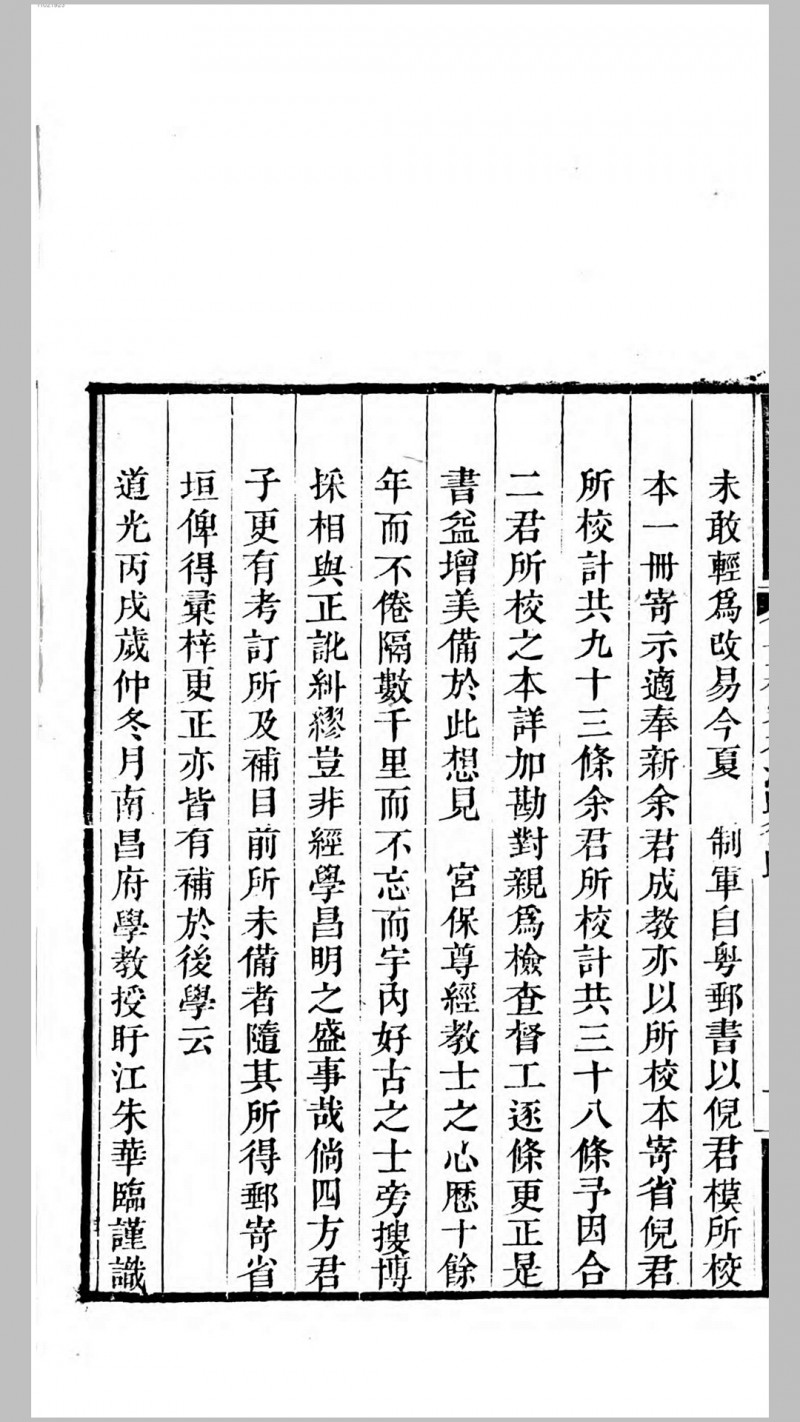 未敢輕爲改易今夏　制軍自粤郵書以倪君模所校
本一冊寄示適奉新余君成教亦以所校本寄省倪君
所校計共九十三條余君所校計共三十八條予因合
二君所校之本詳加勘對親爲檢查督工逐條更正是
書益增美備於此想見　宮保尊經教士之心歷十餘
年而不倦隔數千里而不忘而宇內好古之士旁搜博
採相與正訛糾繆豈非經學昌明之盛事哉倘四方君
子更有考訂所及補目前所未備者隨其所得郵寄省
垣俾得彙梓更正亦皆有補於後學云
道光丙戌歲仲冬月南昌府學教授盱江朱華臨謹識